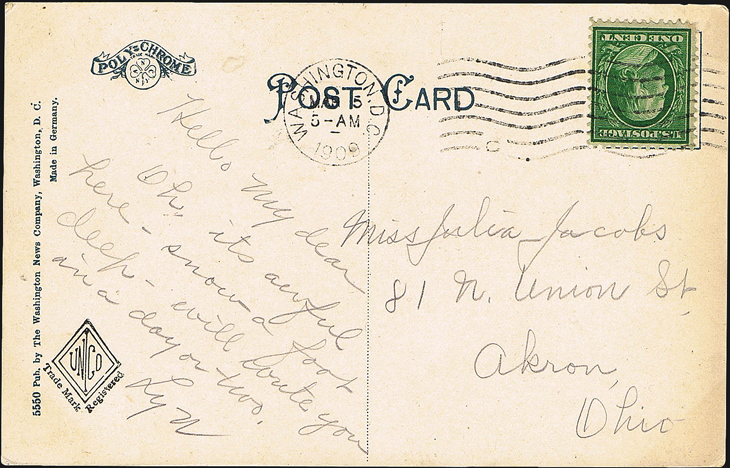 POLY-CHROME
POST CARD
WASHINGTON, D.C.
MAR 5
5-AM
1909
ONE CENT
U.S. POSTAGE
Hello My dear
Oh, its awful
here - snow a foot
deep - will write you
in a day or two.
Lyn
Miss Julia Jacobs
81 N. Union St
Akron,
Ohio
5550 Pub. by The Washington News Company, Washington, D. C.
Made in Germany.
UNCO
Trade Mark Registered